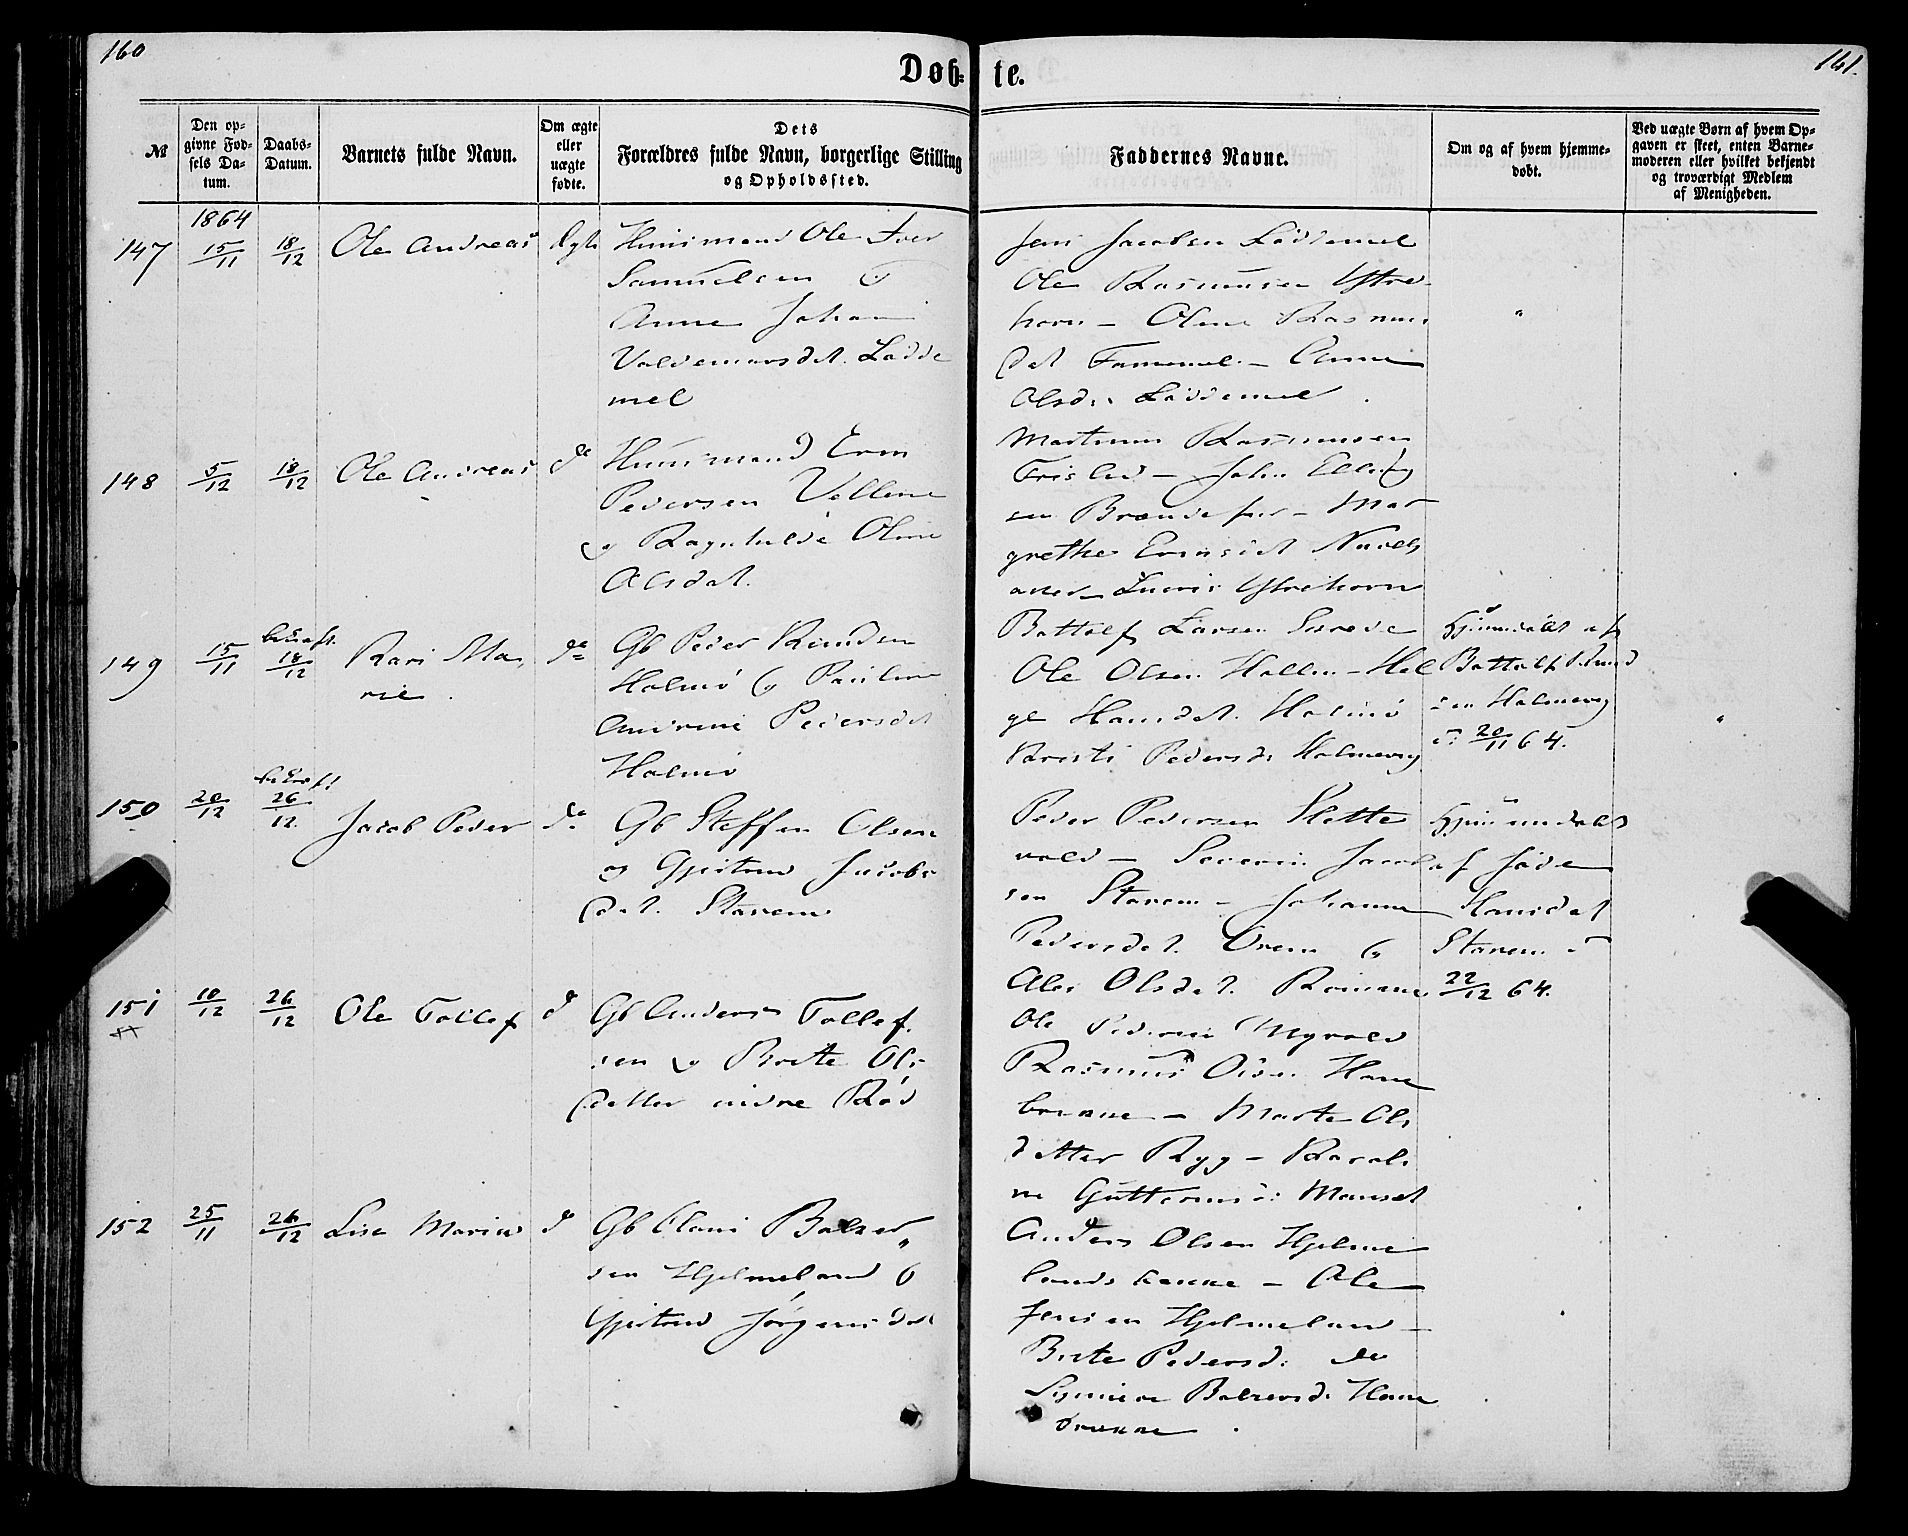 160
161.
Døb-
te.
№
Den op-
givne Fød-
sels Da-
tum.
Daabs-
Datum.
Barnets fulde Navn.
Om ægte
eller
uægte
fødte.
Dets
Forældres fulde Navn, borgerlige Stilling
og Opholdssted.
Faddernes Navne.
Om og af hvem hjemme-
døbt.
Ved uægte Børn af hvem Op-
gaven er skeet, enten Barne-
moderen eller hvilket bekjendt
og troværdigt Medlem
af Menigheden.
1864
147 15/11 18/12 Ole Andreas Huusmand Ole Iver
Samuelsen
Anne Johan
Valdemarsdat. Lødde
mel
Jens Jacobsen Løddemel
Ole Rasmusen Ystre
horn - Oline Rasmus
dat - Anne
Olsd: Løddemel
148 5/12 18/12 Ole Andreas do Huusmand
Pedersen
og Ragnhilde Oline
Olsdat.
Martinus Rasmusen
- John Elling
sen - Mar
grethe
Ystrehorn
149 15/11 18/12 Kari Ma
rie do Gb Peder Knudsen
Holmø og Pauline
Andrine Pedersdat
Holmø
Bottolf Larsen
Ole Olsen Hollen - Hel
ge Hansdat. Holmø
Kristi Pedersd: Holmevig
Hjemmedøbt af
Bottolf Knud
sen Holmevig
d: 20/11 64.
150 20/12 26/12. Jacob Peder do Gb Steffen Olsen
og Gjertrud Jacobs
dat. Stavem
Peder Pedersen Slette
vold - Severin Jacob
sen Stavem - Johanne
Pedersdat. og
Olsdat.
Hjemmedøbt
af
Hansdat
Stavem d
22/12 64.
151 10/12 26/12 Ole Tollef d Gb Anders Tollef
sen og Brite Ols
datter indre Rød
Ole Pedersen Myrold
Rasmus Olsen Hane
brekke - Marte Ols
datter Ryg - Karoli
ne Guttormsd:
152 25/11 26/12 Lise Marie d Gb Claus Balzer
sen Hjelmeland og
Gjertrud Jørgensdat
Anders Olsen Hjelme
lands - Ole
Jensen Hjelmeland -
Brite Pedersd: do
Balzersd: Hane
brekke